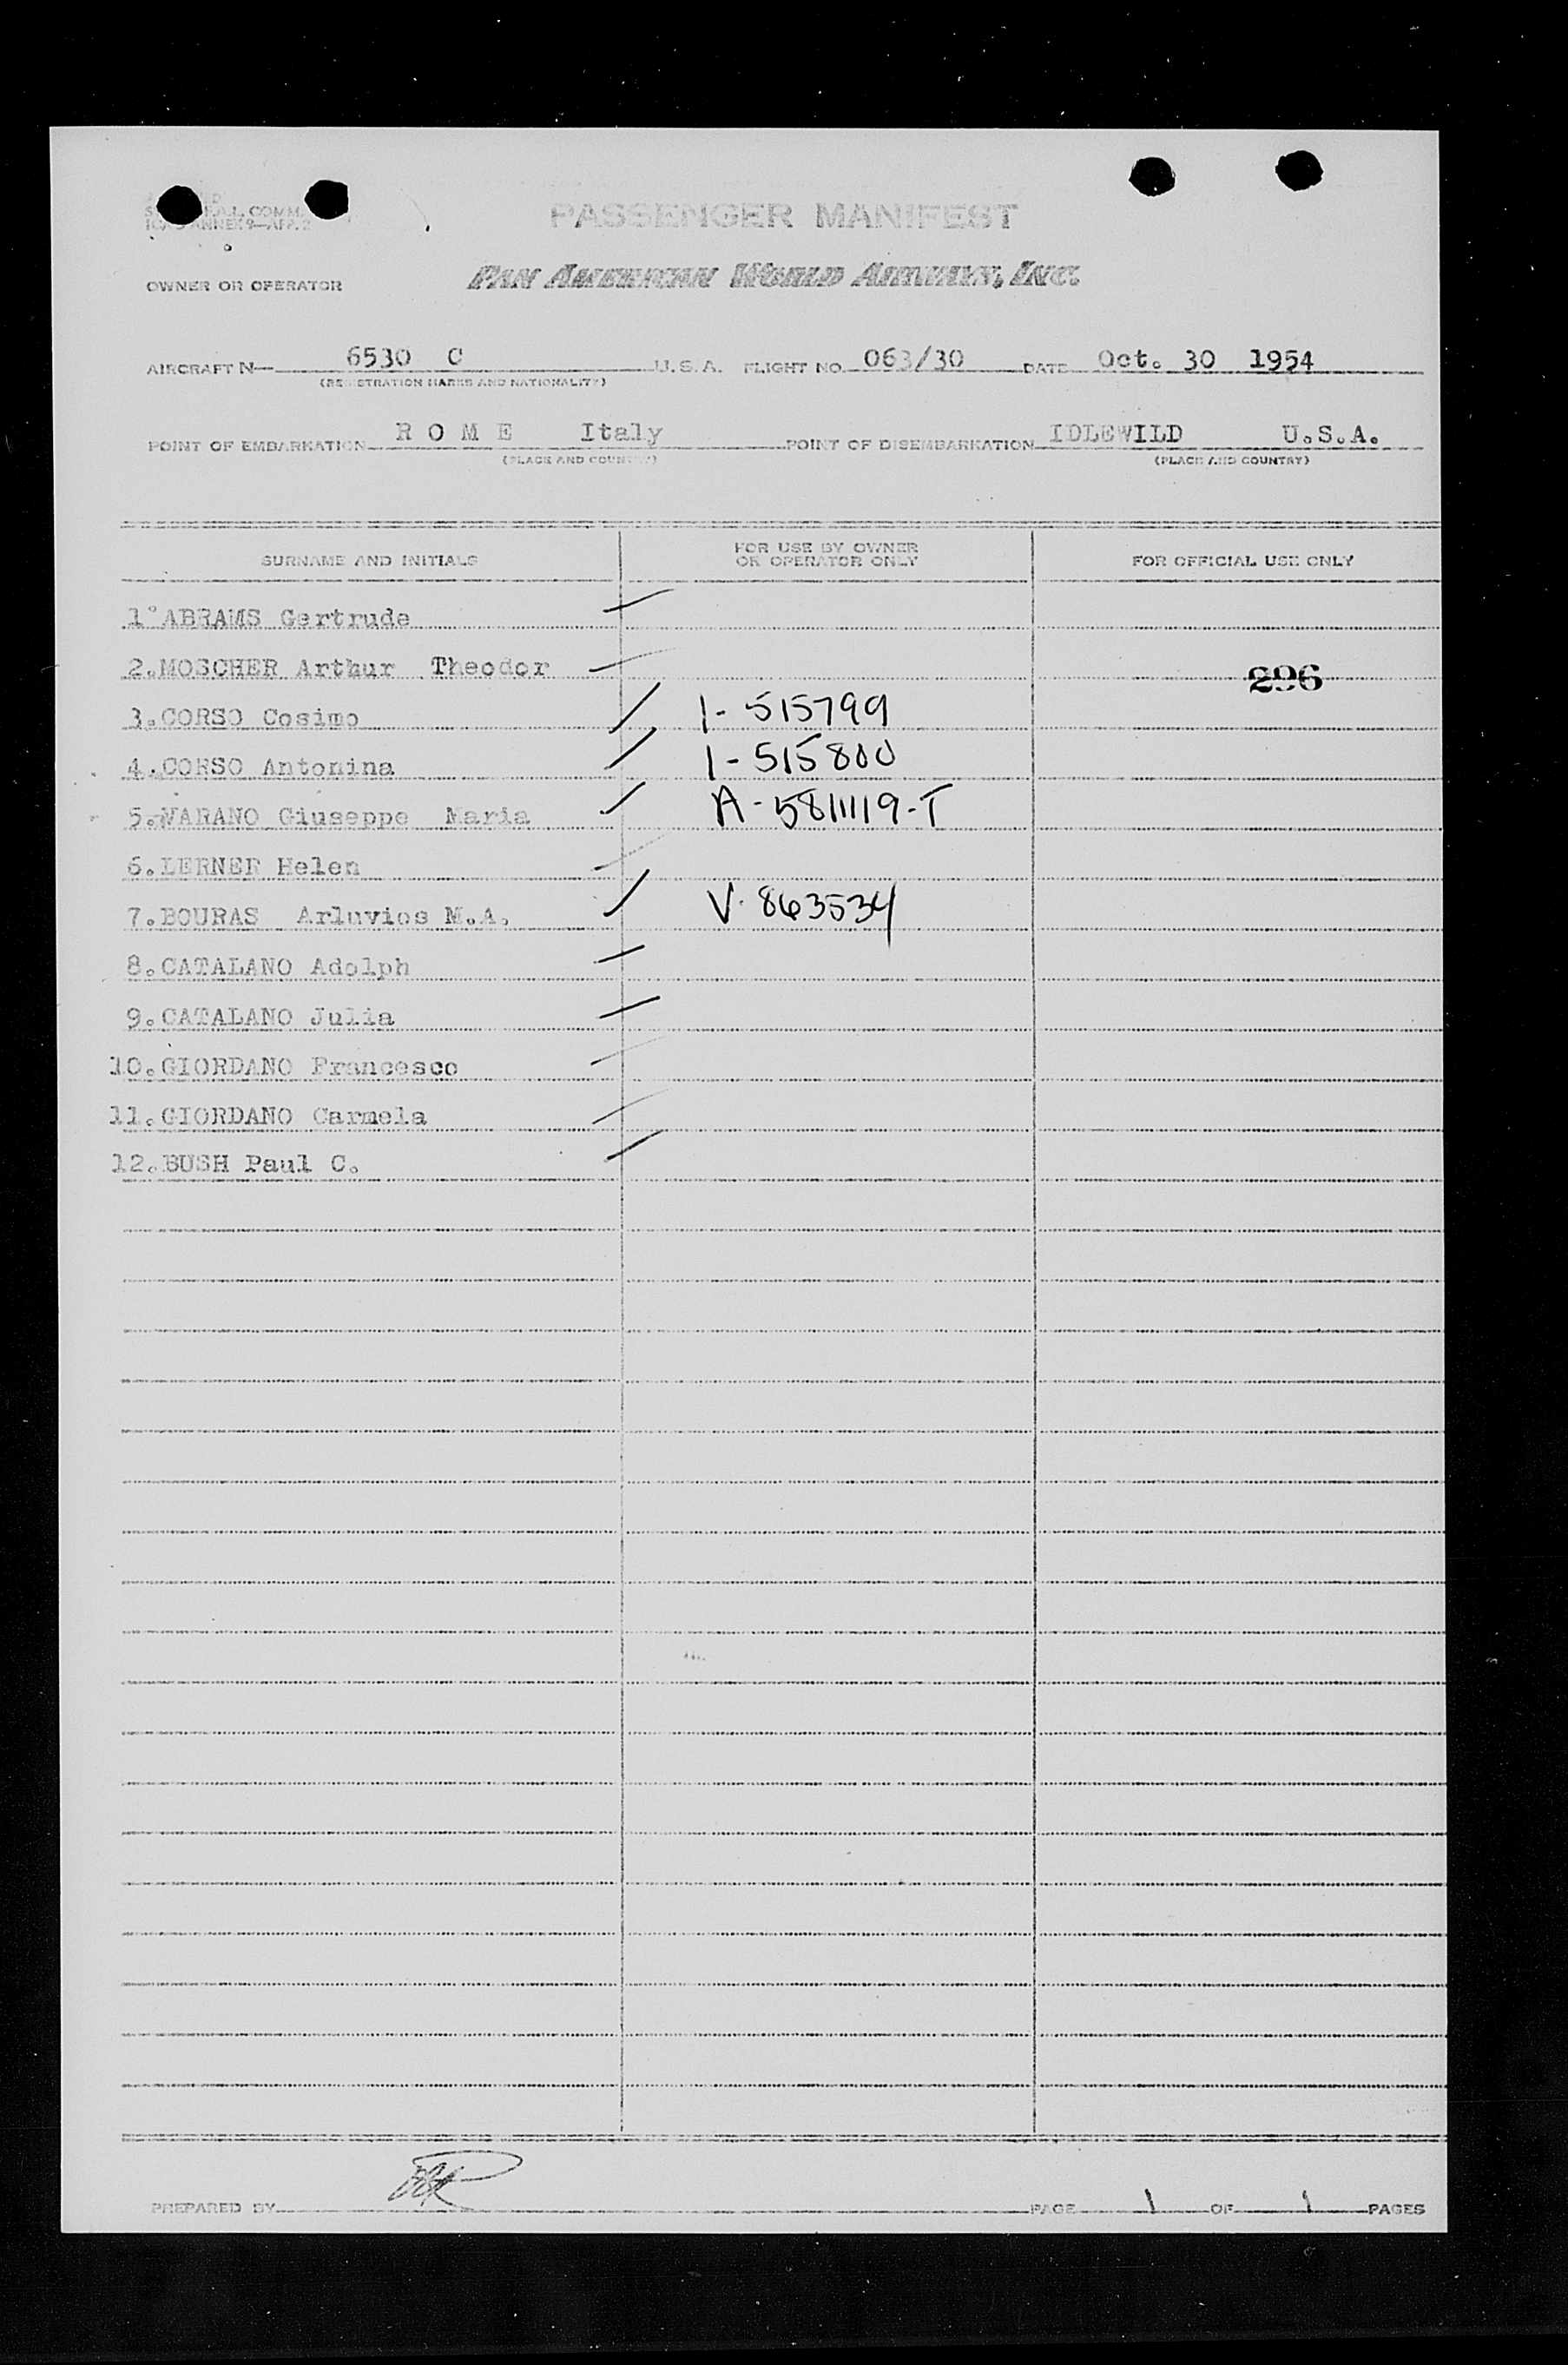 PASSENGER MANIFEST
OWNER OR OPERATOR PAN AMERICAN WORLD AIRWAYS, INC.
AIRCRAFT N— 6530 C U.S.A. FLIGHT NO. 063/30 DATE Oct. 30 1954
(REGISTRATION MARKS AND NATIONALITY)
POINT OF EMBARKATION R O M E Italy POINT OF DISEMBARKATION IDLEWILD U.S.A.
(PLACE AND COUNTRY) (PLACE AND COUNTRY)
SURNAME AND INITIALS FOR USE BY OWNER OR OPERATOR ONLY FOR OFFICIAL USE ONLY
1°ABRAMS Gertrude
2.MOSCHER Arthur Theodor 296
3.CORSO Cosimo 1-515799
4.CORSO Antonina 1-515800
5.VARANO Giuseppe Maria A-5811119-T
6.LERNER Helen
7.BOURAS Arluvios M.A. V-863534
8.CATALANO Adolph
9.CATALANO Julia
10.GIORDANO Francesco
11.GIORDANO Carmela
12.BUSH Paul C.
PREPARED BY PAGE 1 OF 1 PAGES